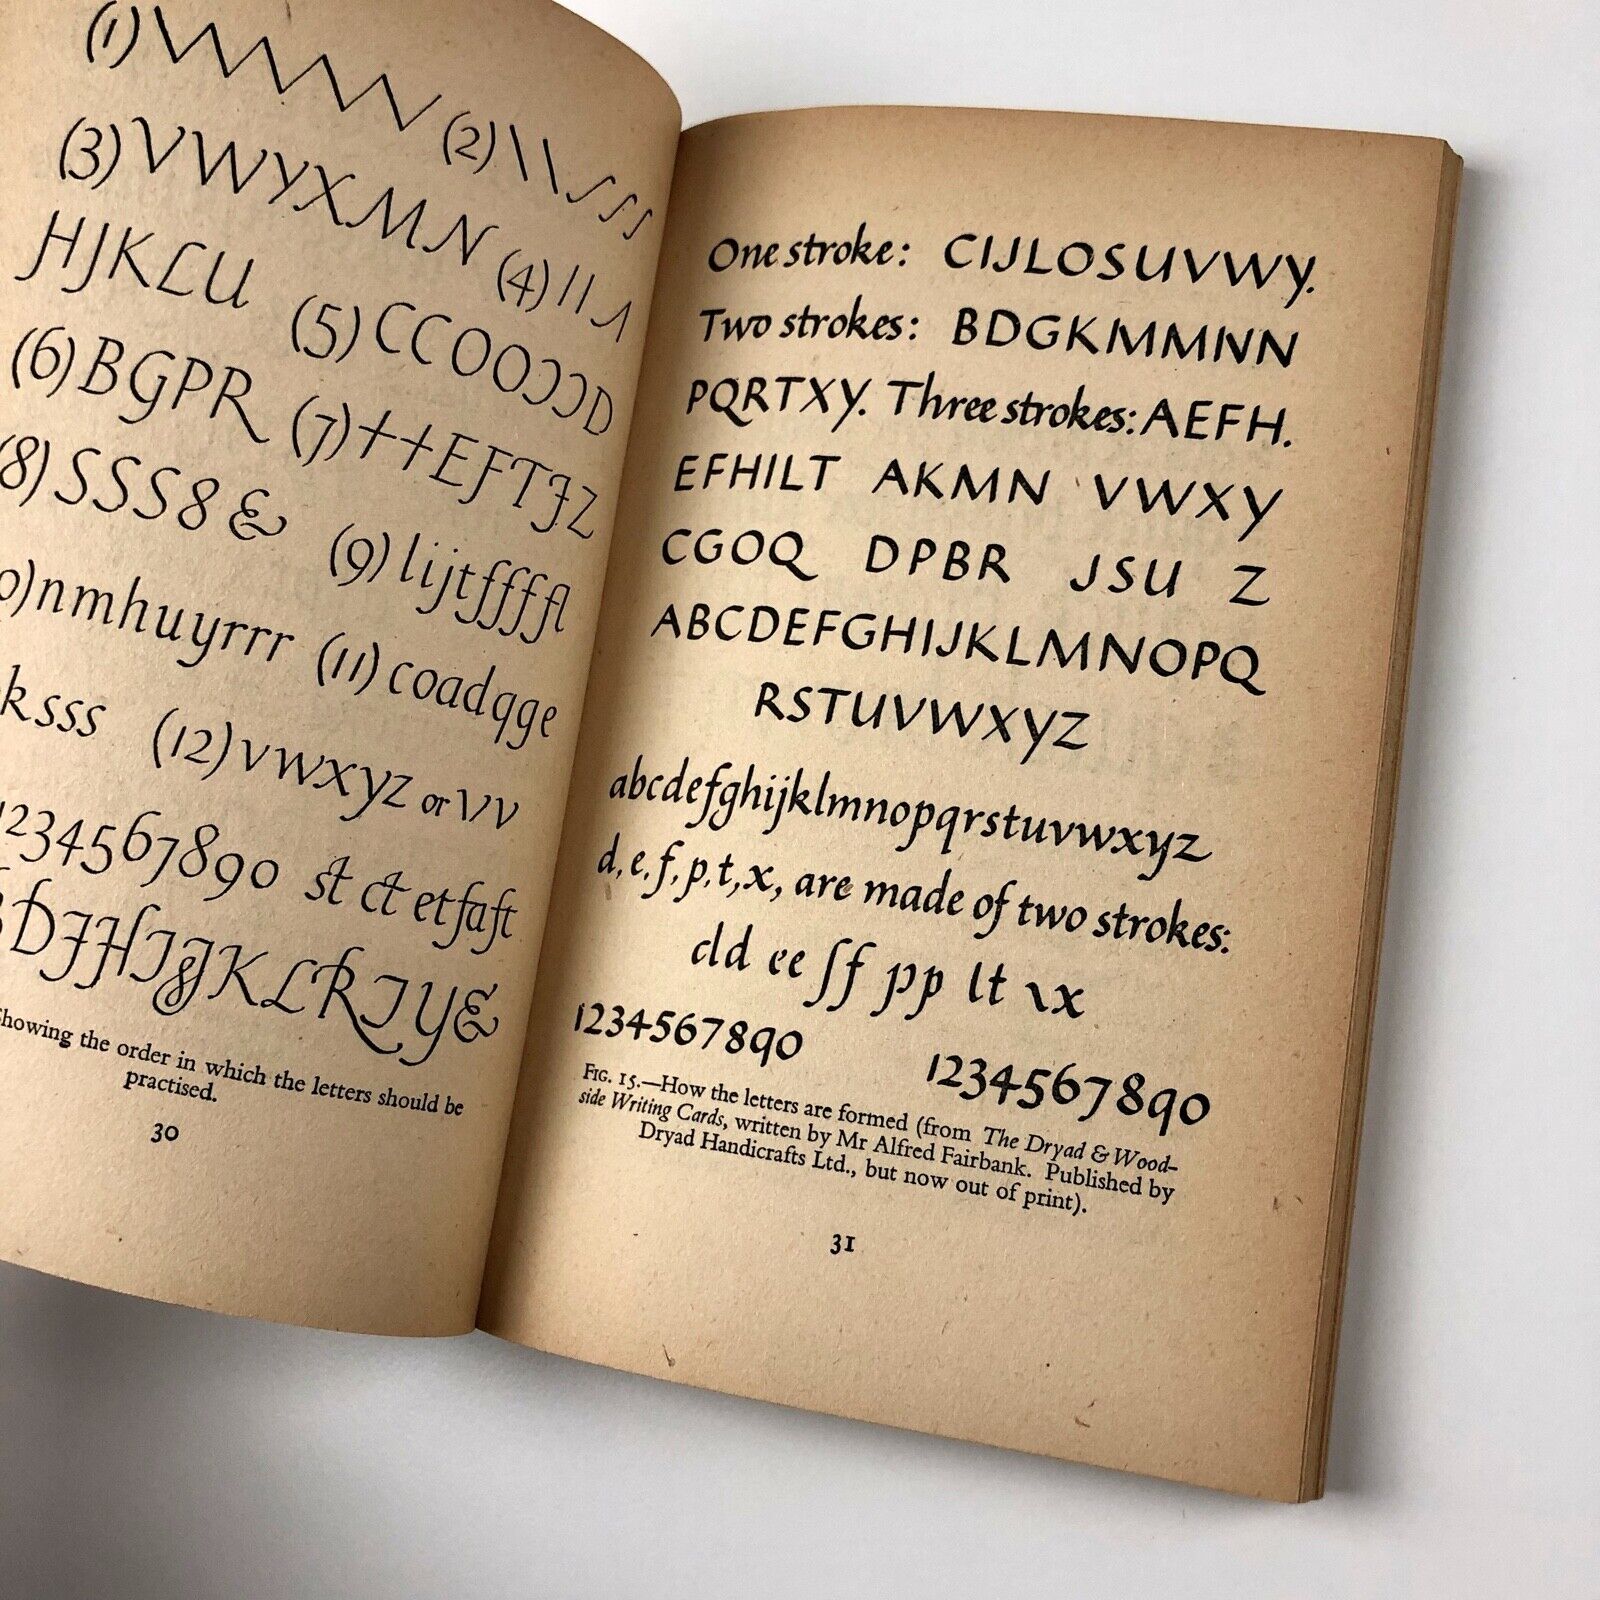 (1) VVVVV (2) \ \ ʃ ʃ ʃ
(3) VWYXMN (4) I I Λ
HJKLU (5) CCOOƆƆD
(6) BGPR (7) ++EFTJZ
(8) SSS8& (9) lijtffffl
nmhuyrrr (11) coadqge
ksss (12) vwxyz or \/v
1234567890 st ct et fa ft
DFHIJKLRTY&
Showing the order in which the letters should be
practised.
30
One stroke: CIJLOSUVWY.
Two strokes: BDGKMMNN
PQRTXY. Three strokes: AEFH.
EFHILT AKMN VWXY
CGOQ DPBR JSU Z
ABCDEFGHIJKLMNOPQ
RSTUVWXYZ
abcdefghijklmnopqrstuvwxyz
d, e, f, p, t, x, are made of two strokes:
cld ee ʃf pp lt \x
1234567890 1234567890
FIG. 15.—How the letters are formed (from The Dryad & Wood-
side Writing Cards, written by Mr Alfred Fairbank. Published by
Dryad Handicrafts Ltd., but now out of print).
31